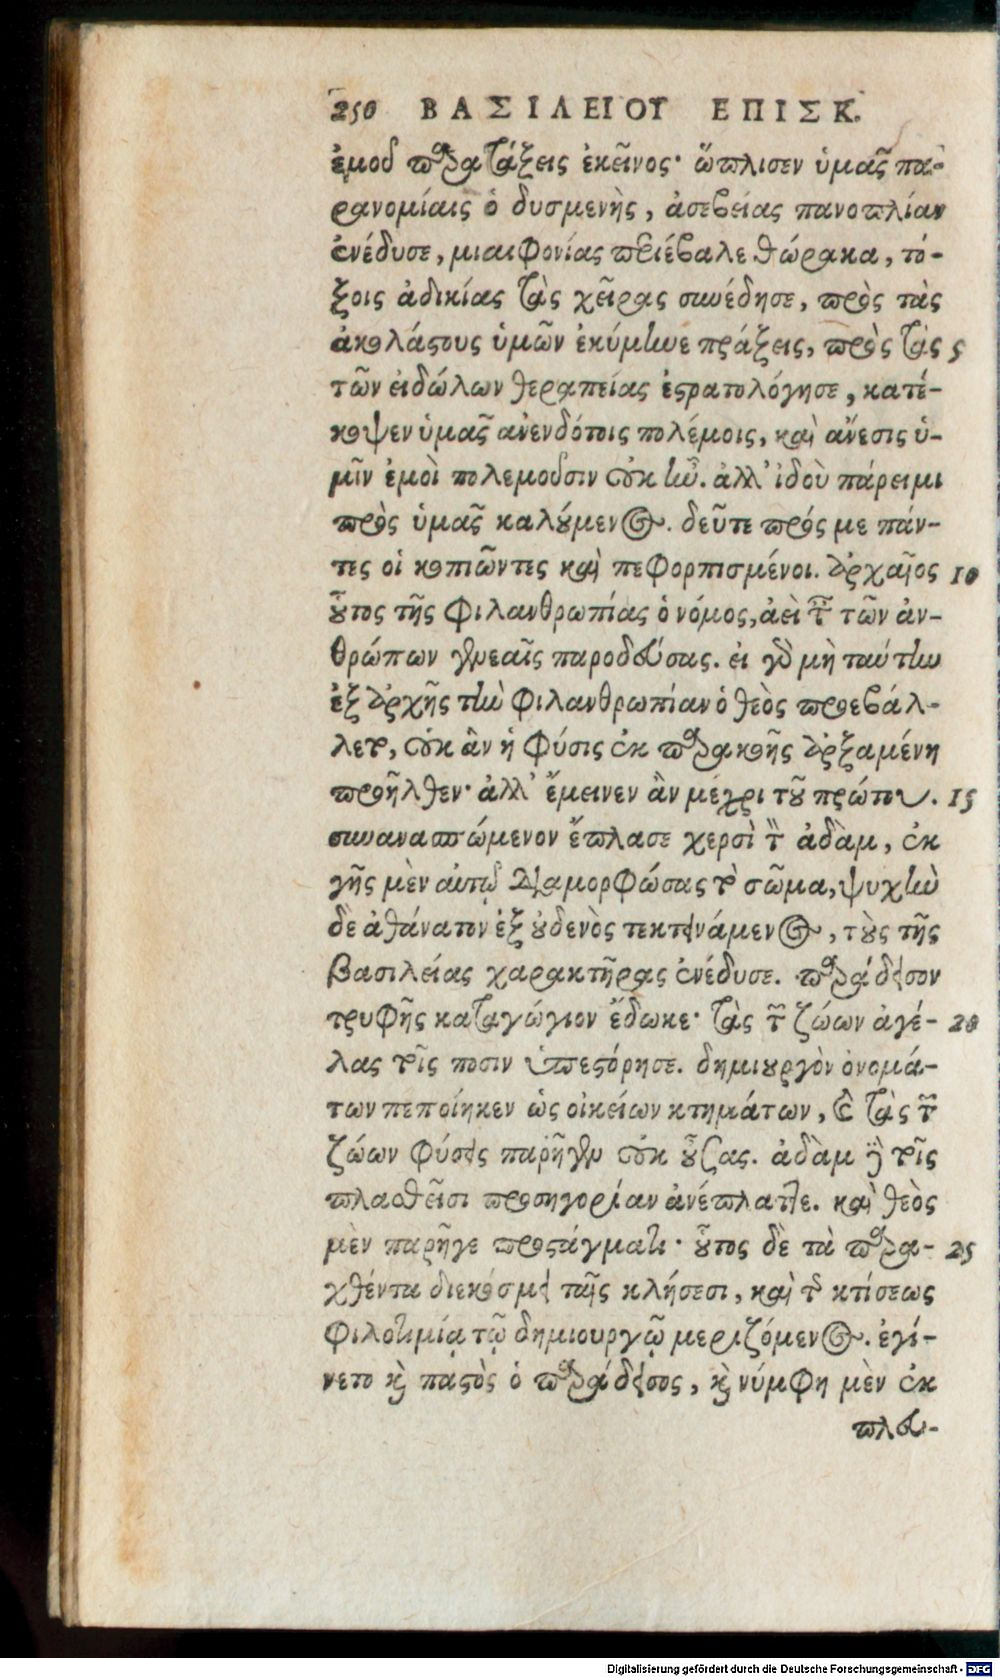 250 ΒΑΣΙΛΕΙΟΥ ΕΠΙΣΚ.
ἐμοῦ παρατάξεις ἐκεῖνος· ὥπλισεν ὑμᾶς πα-
ρανομίαις ὁ δυσμενὴς, ἀσεβείας πανοπλίαν
ἐνέδυσε, μιαιφονίας περιέβαλε θώρακα, τό-
ξοις ἀδικίας τὰς χεῖρας συνέδησε, πρὸς τὰς
ἀκολάστους ὑμῶν ἐκύμηνε πράξεις, πρὸς τὰς 5
τῶν εἰδώλων θεραπείας ἐστρατολόγησε, κατέ-
κοψεν ὑμᾶς ἀνενδότοις πολέμοις, καὶ ἄνεσις ὑ-
μῖν ἐμοὶ πολεμοῦσιν οὐκ ἦν. ἀλλ' ἰδοὺ πάρειμι
πρὸς ὑμᾶς καλούμενος. δεῦτε πρός με πάν-
τες οἱ κοπιῶντες καὶ πεφορτισμένοι. ἀρχαῖος 10
οὗτος τῆς φιλανθρωπίας ὁ νόμος, ἀεὶ τῶν τῶν ἀν-
θρώπων γενεαῖς παροδεύσας. εἰ γὰρ μὴ ταύτην
ἐξ ἀρχῆς τὴν φιλανθρωπίαν ὁ θεὸς προεβάλ-
λετο, οὐκ ἂν ἡ φύσις ἐκ παρακοῆς ἀρξαμένη
προῆλθεν· ἀλλ' ἔμεινεν ἂν μέχρι τοῦ πρώτου. 15
συναναπτώμενον ἔπλασε χερσὶ τὸν ἀδὰμ, ἐκ
γῆς μὲν αὐτῷ διαμορφώσας τὸ σῶμα, ψυχὴν
δὲ ἀθάνατον ἐξ οὐδενὸς τεκτηνάμενος, τοὺς τῆς
βασιλείας χαρακτῆρας ἐνέδυσε. παράδεισον
τρυφῆς καταγώγιον ἔδωκε· τὰς τῶν ζώων ἀγέ- 20
λας τοῖς ποσὶν ὑπεστόρησε. δημιουργὸν ὀνομά-
των πεποίηκεν ὡς οἰκείων κτημάτων, καὶ τὰς τῶν
ζώων φύσεις παρῆγεν οὐκ οὔσας. ἀδὰμ δὲ τοῖς
πλασθεῖσι προσηγορίαν ἀνέπλαττε. καὶ θεὸς
μὲν παρῆγε προστάγματι· οὗτος δὲ τὰ παρα- 25
χθέντα διεκόσμει ταῖς κλήσεσι, καὶ τῆς κτίσεως
φιλοτιμίᾳ τῷ δημιουργῷ μεριζόμενος. ἐγί-
νετο καὶ παστὸς ὁ παράδεισος, καὶ νύμφη μὲν ἐκ
πλευ-
Digitalisierung gefördert durch die Deutsche Forschungsgemeinschaft - DFG